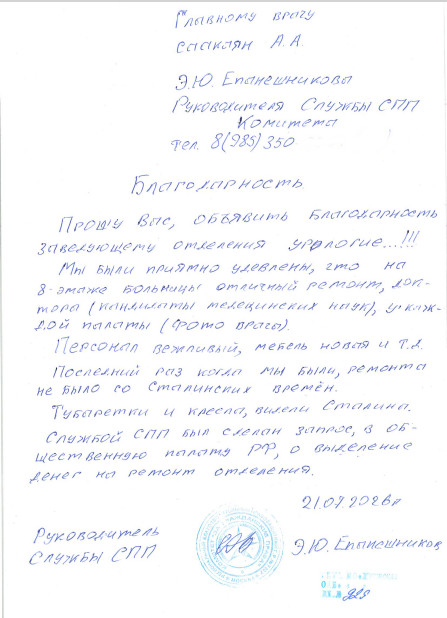 Главному врачу
Саакян А.А.
Э.Ю. Епанешникова
Руководителя Службы СПП
Комитета
Тел. 8(985)350
Благодарность
Прошу Вас, объявить благодарность
заведующему отделения урологие...!!!
Мы были приятно удевлены, что на
8-этаже больницы отличный ремонт, док-
тора (кандидаты медецинских наук), у каж-
дой палаты (фото врача).
Персонал вежливый, мебель новая и т.д.
Последний раз когда мы были, ремонта
не было со Сталинских времён.
Тубаретки и кресла, видели Сталина.
Службой СПП был сделан запрос, в об-
щественную палату РФ, о выделение
денег на ремонт отделения.
21.07.2026г
Руководитель
Службы СПП
Э.Ю. Епанешников